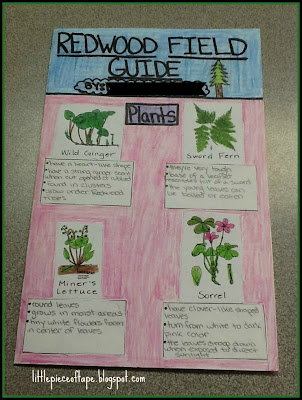 REDWOOD FIELD
GUIDE
BY:
Plants
Wild Ginger
• have a heart-like shape
• have a strong ginger scent
when ripped or rubbed
• found in clusters
• grow under Redwood
trees
Sword Fern
• they're very tough
• base of a leaflet
the young leaves can
be boiled or eaten
Miner's
Lettuce
• round leaves
• grows in moist areas
• tiny white flowers from
a center of leaves
Sorrel
• have clover-like shaped
leaves
• turn from white to dark
pink color
• the leaves droop down
when exposed to direct
sunlight
littlepieceoftape.blogspot.com